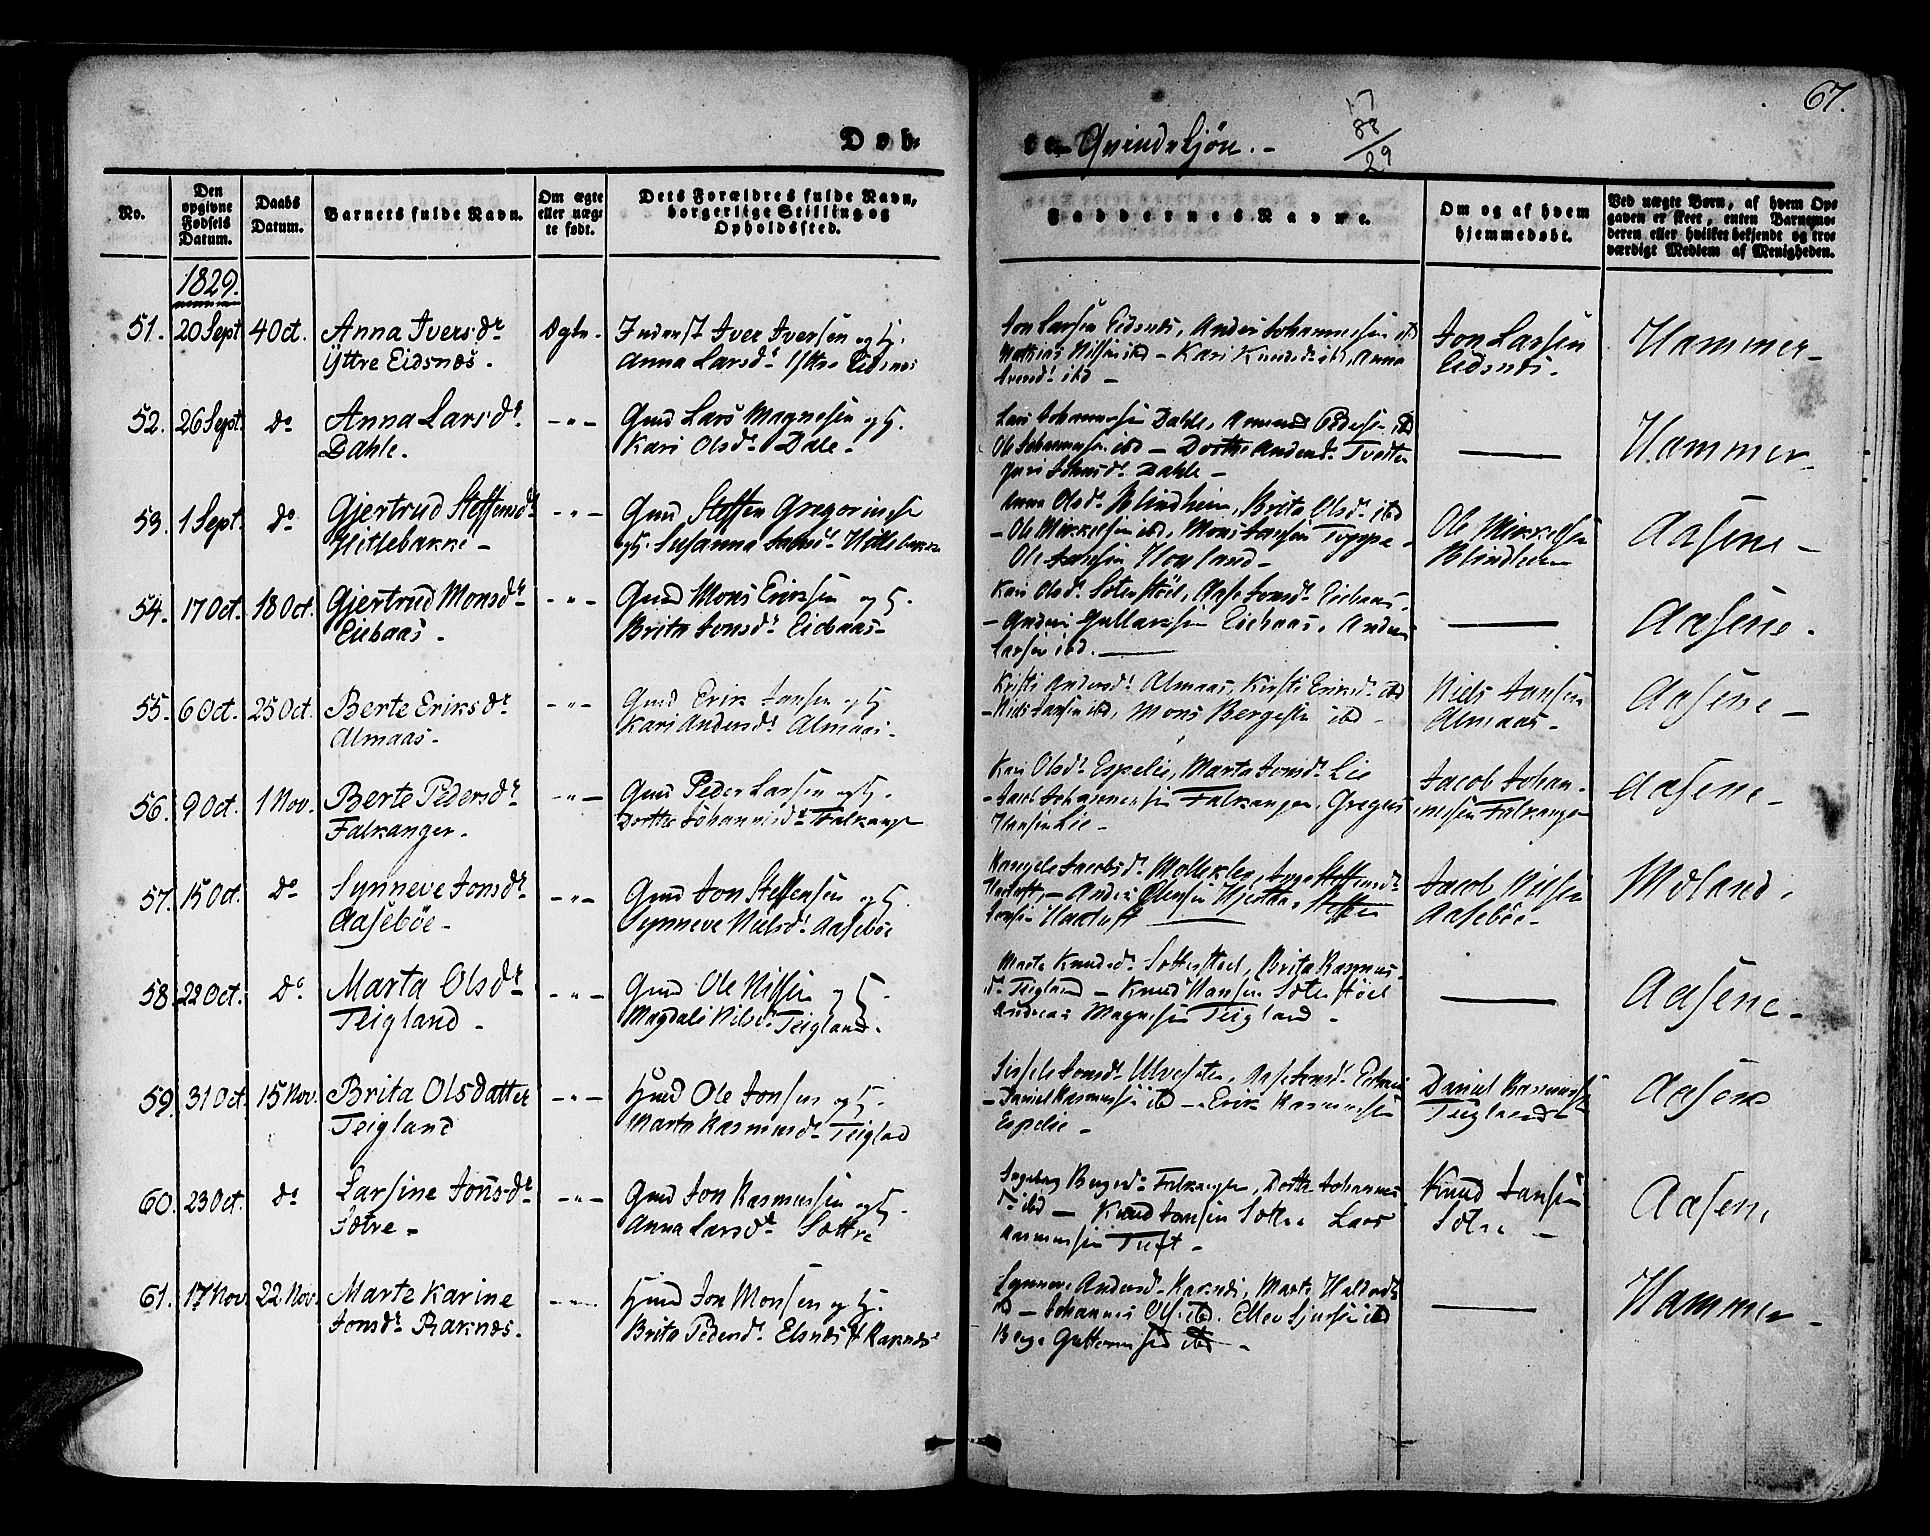 67.
Døb-
te Qvindekjøn.
88/29
No.
Den
opgivne
Fødsels
Datum.
Daabs
Datum.
Barnets fulde Navn.
Om ægte
eller uæg-
te født.
Dets Forældres fulde Navn,
borgerlige Stilling og
Opholdssted.
Faddernes Navne.
Om og af hvem
hjemmedøbt.
Ved uægte Børn, af hvem Op-
gaven er skeet, enten Barnemo-
deren eller hvilket bekjendt og tro-
værdigt Medlem af Menigheden.
1829.
51. 20 Sept 4 Oct. Anna Iversdr
Yttre Eidsnæs.
Ægte.
Inderst Iver Iversen og H.
Anna Larsdr Yttre Eidsnæs
Jon Larsen Eidsnæs, Anders Johannessen ibd
Mathias Nilsen ibd - Kari Knudsdr ibd, Anna
ibd -
Jon Larsen
Eidsnæs.
Hammer
52. 26 Sept. do Anna Larsdr
Dahle.
-"-
Gmd Lars Magnesen og H.
Kari Olsdr Dale.
Lars Johannessen Dahle, Pedersen ibd
Ole Johannessen ibd - Dorthe Andersdr Tveiten
Dahle -
Hammer
53. 1 Sept. do Gjertrud Steffensdr
Hillebakke -
-"-
Gmd Steffen Gregoriussen
og H. Susanna Hillebakke
Anna Olsdr Blindheim, Brita Olsdr ibd
- Ole Mikkelsen ibd, Mons Jansen Toppe
Ole Jansen Houland -
Ole Mikkelsen
Blindheim
Aasene -
54. 17 Oct. 18 Oct. Gjertrud Monsdr
Eicbaas.
-"-
Gmd Mons Eriksen og H.
Brita Jonsdr Eicbaas
Kari Olsdr Soterstöel, Aase Jonsdr Eicbaas.
- Anders Eicbaas, Anders
Larsen ibd.
Aasene.
55. 6 Oct. 25 Oct. Berte Eriksdr
Almaas.
-"-
Gmd Erik Jansen og H
Kari Andersdr Almaas.
Kristi Andersdr Almaas, Kirsti Eriksdr ibd
- Niels Jansen ibd, Mons Bergesen ibd -
Niels Jansen
Almaas -
Aasene -
56. 9 Oct. 1 Nov. Berte Pedersdr
Falkanger.
-"-
Gmd Peder Larsen og H.
Dorthe Johannesdr Falkange
Kari Olsdr Espelie, Marta Jonsdr Lie
- Jacob Johannessen Falkanger, Gregus
Hansen Lie -
Jacob Johan-
nessen Falkanger
Aasene -
57. 15 Oct. do Synneve Jonsdr
Aasebøe -
-"-
Gmd Jon Steffensen og H
Synneve Nielsdr Aasebøe
Jacobsdr Steffensdr
- Anders Olensen Steffen
Jansen
Jacob Nilsen
Aasebøe -
Moland.
58. 22 Oct. do Marta Olsdr
Teigland -
-"-
Gmd Ole Nilsen og H.
Magdali Nilsdr Teigland.
Marte Knudsdr Sotterstöel, Brita Rasmus-
dr Teigland - Knud Hansen Soterstöel
Andreas Magnesen Teigland -
Aasene -
59. 31 Oct. 15 Nov. Brita Olsdatter
Teigland
-"-
Hmd Ole Jonsen og H.
Marta Rasmusdr Teigland
Sissele Jonsdr Ulvesæter, Aase Jonsdr
- Daniel Rasmussen ibd - Erik Rasmussen
Espelie -
Daniel Rasmussen
Teigland
Aasene
60. 23 Oct. do Larsine Jonsdr
Sotre -
-"-
Gmd Jon Rasmussen og H.
Anna Larsdr Sottre
Ingeborg Falkanger, Dorthe Johannes
dr ibd - Knud Jansen Sottre Lars
Rasmussen Tuft -
Knud Jansen
Sotre -
Aasene
61. 17 Nov 22 Nov. Marte Karine
Jonsdr Raknæs.
-"-
Hmd Jon Monsen og H.
Brita Pedersdr Elsnæs Raknæs
Synneve Andersdr Raknæs, Marta
ibd - Johannes Olsen ibd. Ellev Sjursen ibd
Berge Guttormsen ibd -
Hammer -